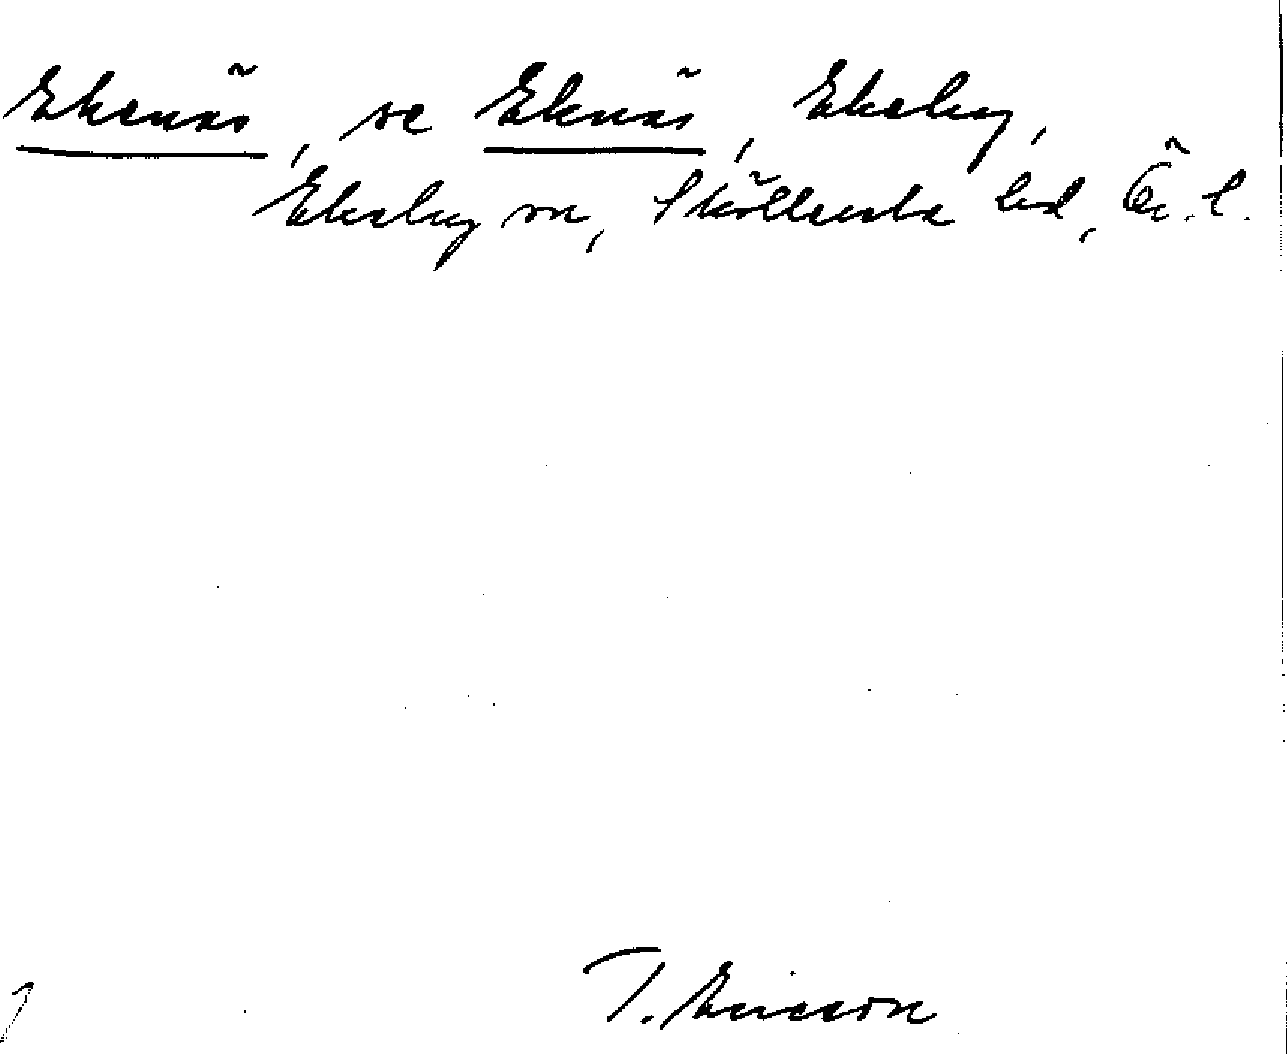 Ekenäs, se Eknäs, Ekeby,
Ekeby sn, Sköllersta hd, Ö.l.
T. Ericsson